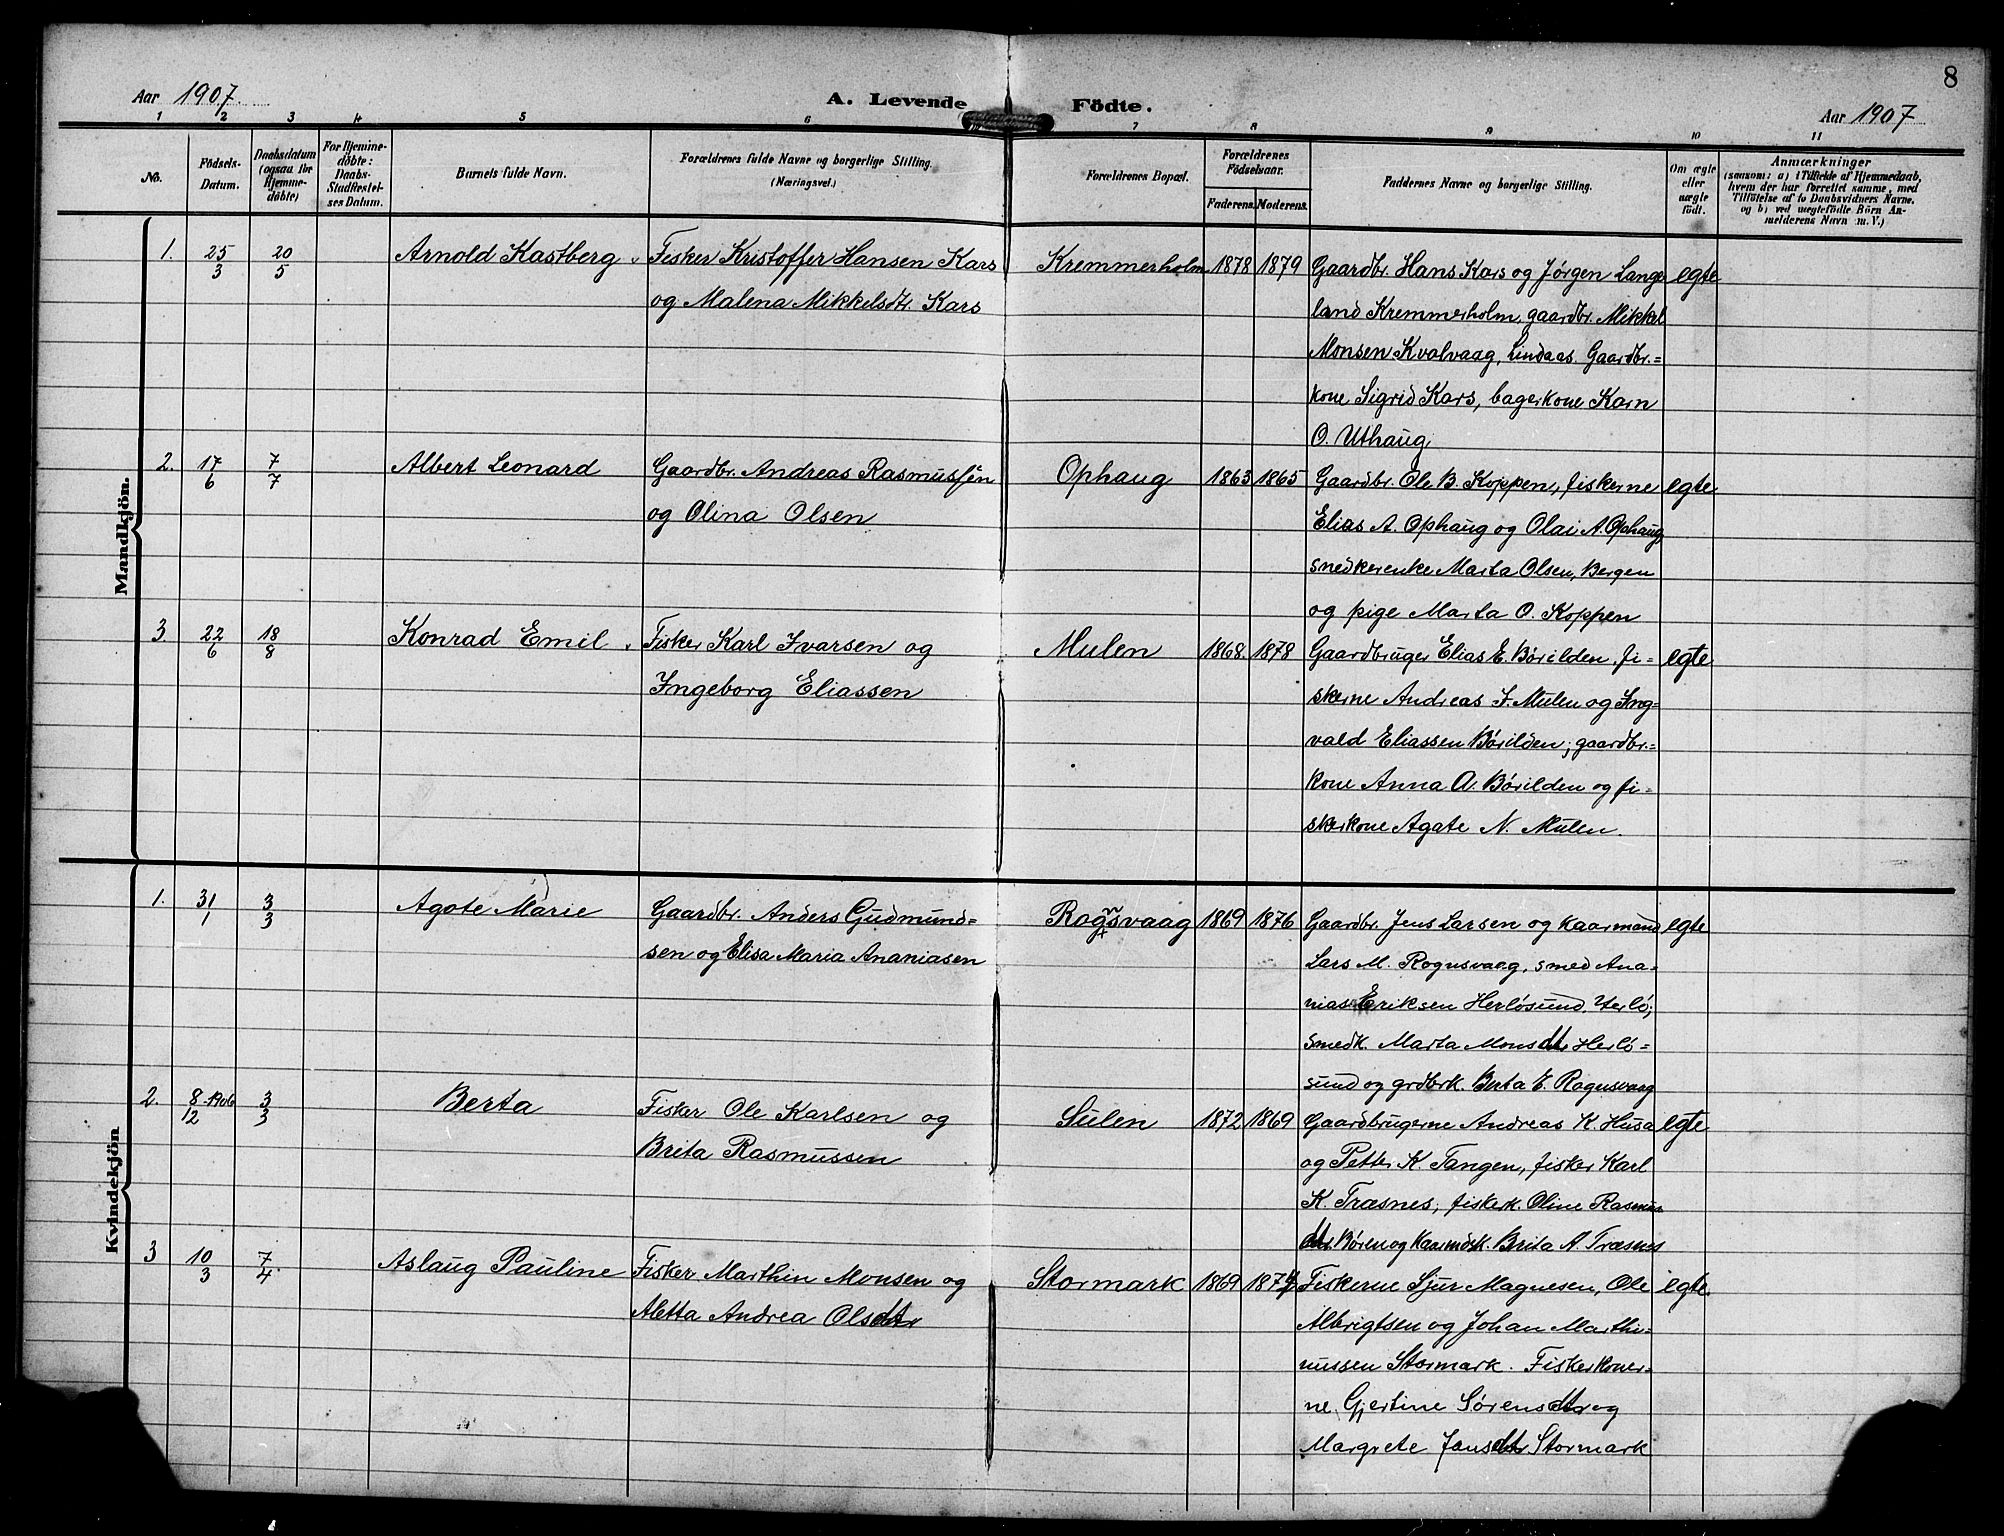 8
Aar 1907.
A. Levende Födte.
Aar 1907
1 2 3 4 5 6 7 8 9 10 11
No.
Födsels-
Datum.
Daabsdatum
(ogsaa for
Hjemme-
døbte)
For Hjemme-
døbte:
Daabs-
Stadfæstel-
ses Datum.
Barnets fulde Navn.
Forældrenes fulde Navne og borgerlige Stilling.
(Næringsvei.)
Forældrenes Bopæl.
Forældrenes
Födselsaar.
Faderens. Moderens.
Faddernes Navne og borgerlige Stilling.
Om ægte
eller
uægte
födt.
Anmærkninger
(saasom: a) i Tilfælde af Hjemmedaab,
hvem der har forrettet samme, med
Tilføielse af to Daabsvidners Navne.
og b) ved uægtefödte Börn An-
melderens Navn m. V.)
Mandkjön.
1. 25/3 20/5 Arnold Kastberg Fisker Kristoffer Hansen Kars Kremmerholm 1878 1879 Gaardbr. Hans Kars og Jørgen Lange egte
og Malena Mikkelsdtr. Kars land Kremmerholm, gaardbr. Mikkel
Monsen Kvalvaag, Lindaas. Gaardbr.=
kone Sigrid Kars, bagerkone Karn
O. Uthaug
2. 17/6 7/7 Albert Leonard Gaardbr. Andreas Rasmussen Ophaug 1863 1865 Gaardbr. Ole B. Koppen, fiskerne egte
og Olina Olsen Elias A. Ophaug og Olai A. Ophaug
snedkerenke Marta Olsen, Bergen
og pige Marta O. Koppen
3. 22/6 18/8 Konrad Emil Fisker Karl Ivarsen og Mulen 1868. 1878 Gaardbruger Elias E. Børilden, fi= egte
Ingeborg Eliassen skerne Andreas I. Mulen og Ing=
vald Eliassen Børilden; gaardbr.=
kone Anna A. Børilden og fi=
skerkone Agate N. Mulen.
Kvindekjön
1. 31/1 3/3 Agote Marie Gaardbr. Anders Gudmund= Rogsvaag 1869 1876 Gaardbr. Jens Larsen og kaarmand egte
sen og Elisa Maria Ananiasen Lars M. Rognsvaag, smed Ana=
nias Eriksen Herløsund, Herlø;
smedk. Marta Monsdtr Herlø=
sund og grdbrk. Berta E. Rognsvaag
2. 8/12 1906 3/3 Berta Fisker Ole Karlsen og Sulen 1872 1869 Gaardbrugerne Andreas K. Husa egte
Brita Rasmussen og Petter K. Tangen, fisker Karl
K. Træsnes; fiskerk. Oline Rasmus
dtr. Børen og kaarmdsk. Brita A. Træsnes
3 10/3 7/4 Aslaug Pauline Fisker Marthin Monsen og Stormark 1869 1874 Fiskerne Sjur Magnesen, Ole egte.
Aletta Andrea Olsdtr Albrigtsen og Johan Marthi=
nussen Stormark. Fiskerkoner=
ne Gjertine Sørensdtr og
Margrete Jansdtr Stormark